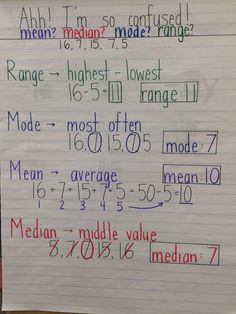 Ahh! I'm so confused!
mean? median? mode? range?
16, 7, 15, 7, 5
Range → highest - lowest
16-5=11 range: 11
Mode → most often
16, 7, 15, 7, 5 mode: 7
Mean → average mean: 10
16 + 7 + 15 + 7 + 5 = 50 ÷ 5 = 10
1 2 3 4 5
Median → middle value
5, 7, 7, 15, 16 median: 7